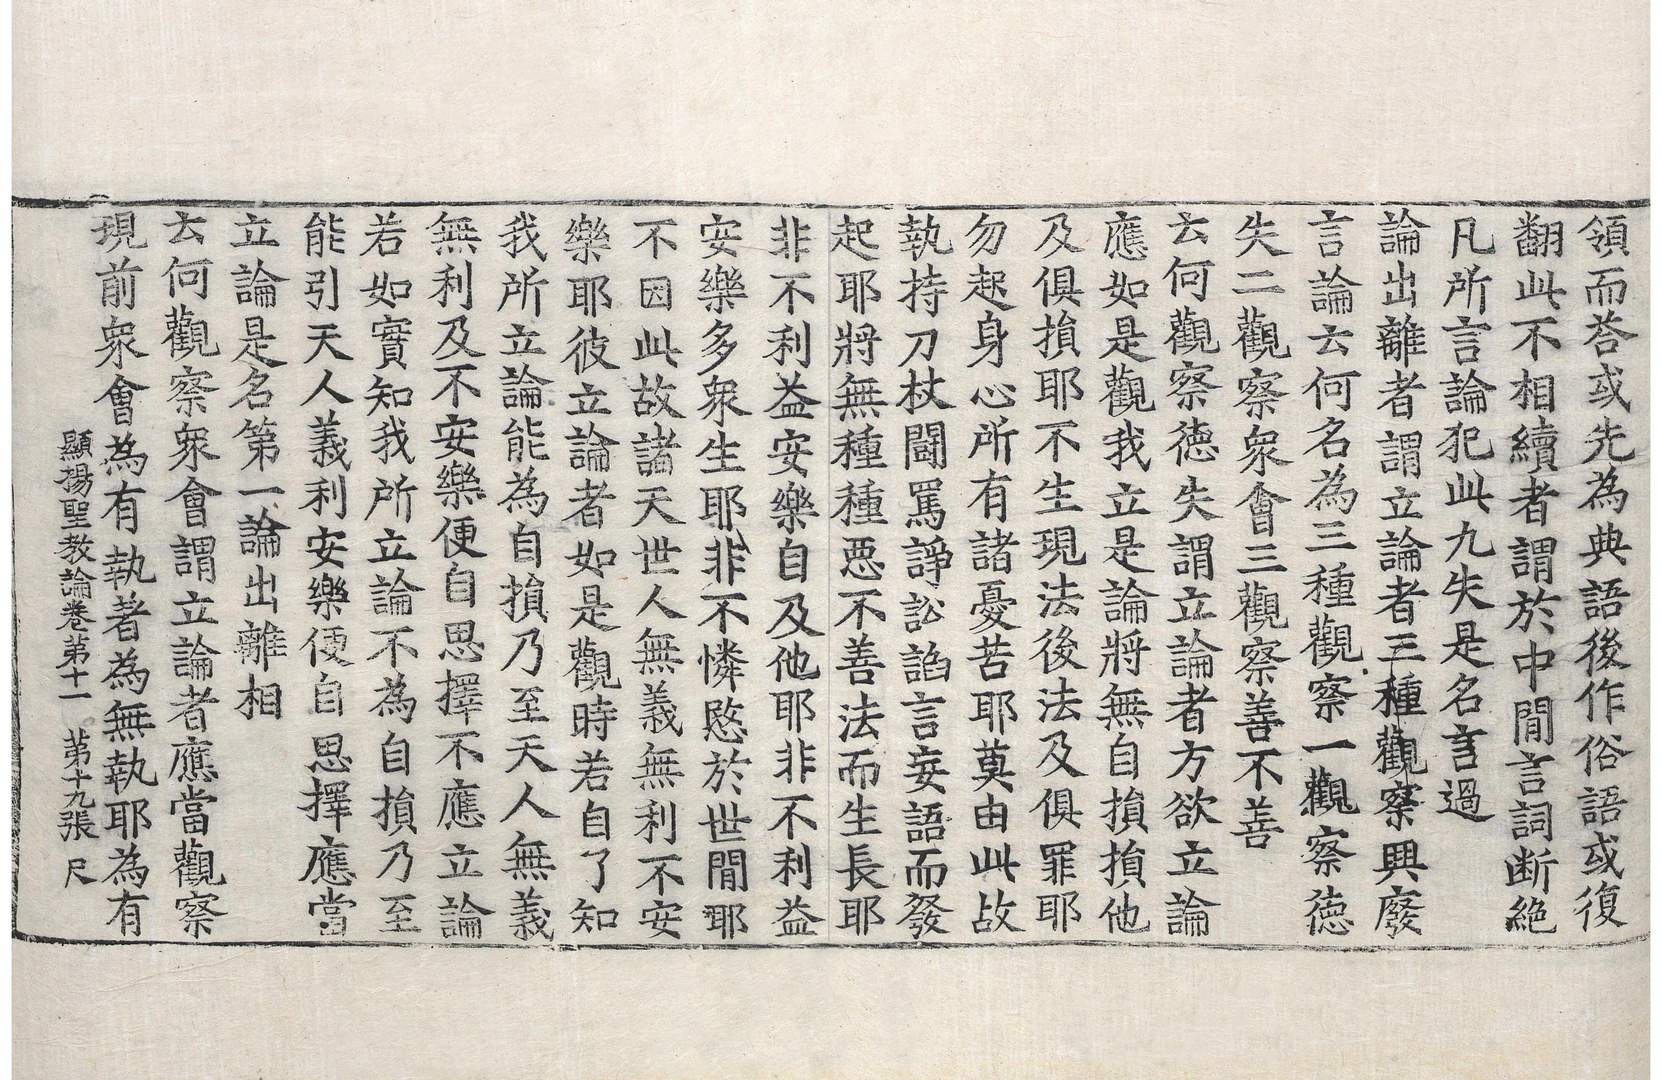 領而荅或先為典語後作俗語或復
翻此不相續者謂於中間言詞断絶
凡所言論犯此九失是名言過
論出離者謂立論者三種觀察興廢
言論云何名為三種觀察一觀察德
失二觀察衆會三觀察善不善
云何觀察德失謂立論者方欲立論
應如是觀我立是論將無自損損他
及俱損耶不生現法後法及俱罪耶
勿起身心所有諸憂苦耶莫由此故
執持刀杖鬪罵諍訟諂言妄語而發
起耶將無種種惡不善法而生長耶
非不利益安樂自及他耶非不利益
安樂多衆生耶非不憐愍於世間耶
不因此故諸天世人無義無利不安
樂耶彼立論者如是觀時若自了知
我所立論能為自損乃至天人無義
無利及不安樂便自思擇不應立論
若如實知我所立論不為自損乃至
能引天人義利安樂便自思擇應當
立論是名第一論出離相
云何觀察衆會謂立論者應當觀察
現前衆會為有執著為無執耶為有
顯揚聖教論卷第十一 第十九張 尺